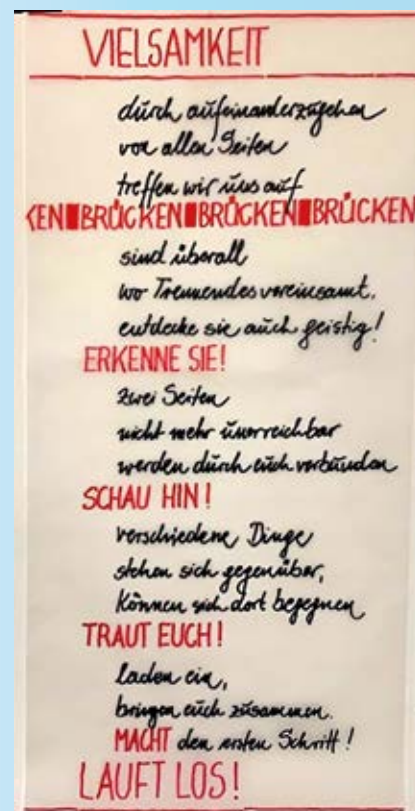 VIELSAMKEIT
durch aufeinanderzugehen
von allen Seiten
treffen wir uns auf
KEN BRÜCKEN BRÜCKEN BRÜCKEN
sind überall
wo Trennendes vereinsamt,
entdecke sie auch geistig!
ERKENNE SIE!
zwei Seiten
nicht mehr unerreichbar
werden durch euch verbunden
SCHAU HIN!
verschiedene Dinge
stehen sich gegenüber,
können sich dort begegnen
TRAUT EUCH!
laden ein,
bringen euch zusammen.
MACHT den ersten Schritt!
LAUFT LOS!